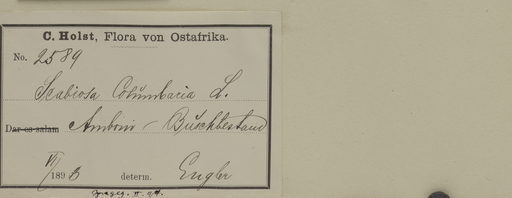 C. Holst, Flora von Ostafrika.
No. 2589
Scabiosa Columbaria L.
Dar-es-salam Amboni - Buschbestand
VII 1893 determ. Engler